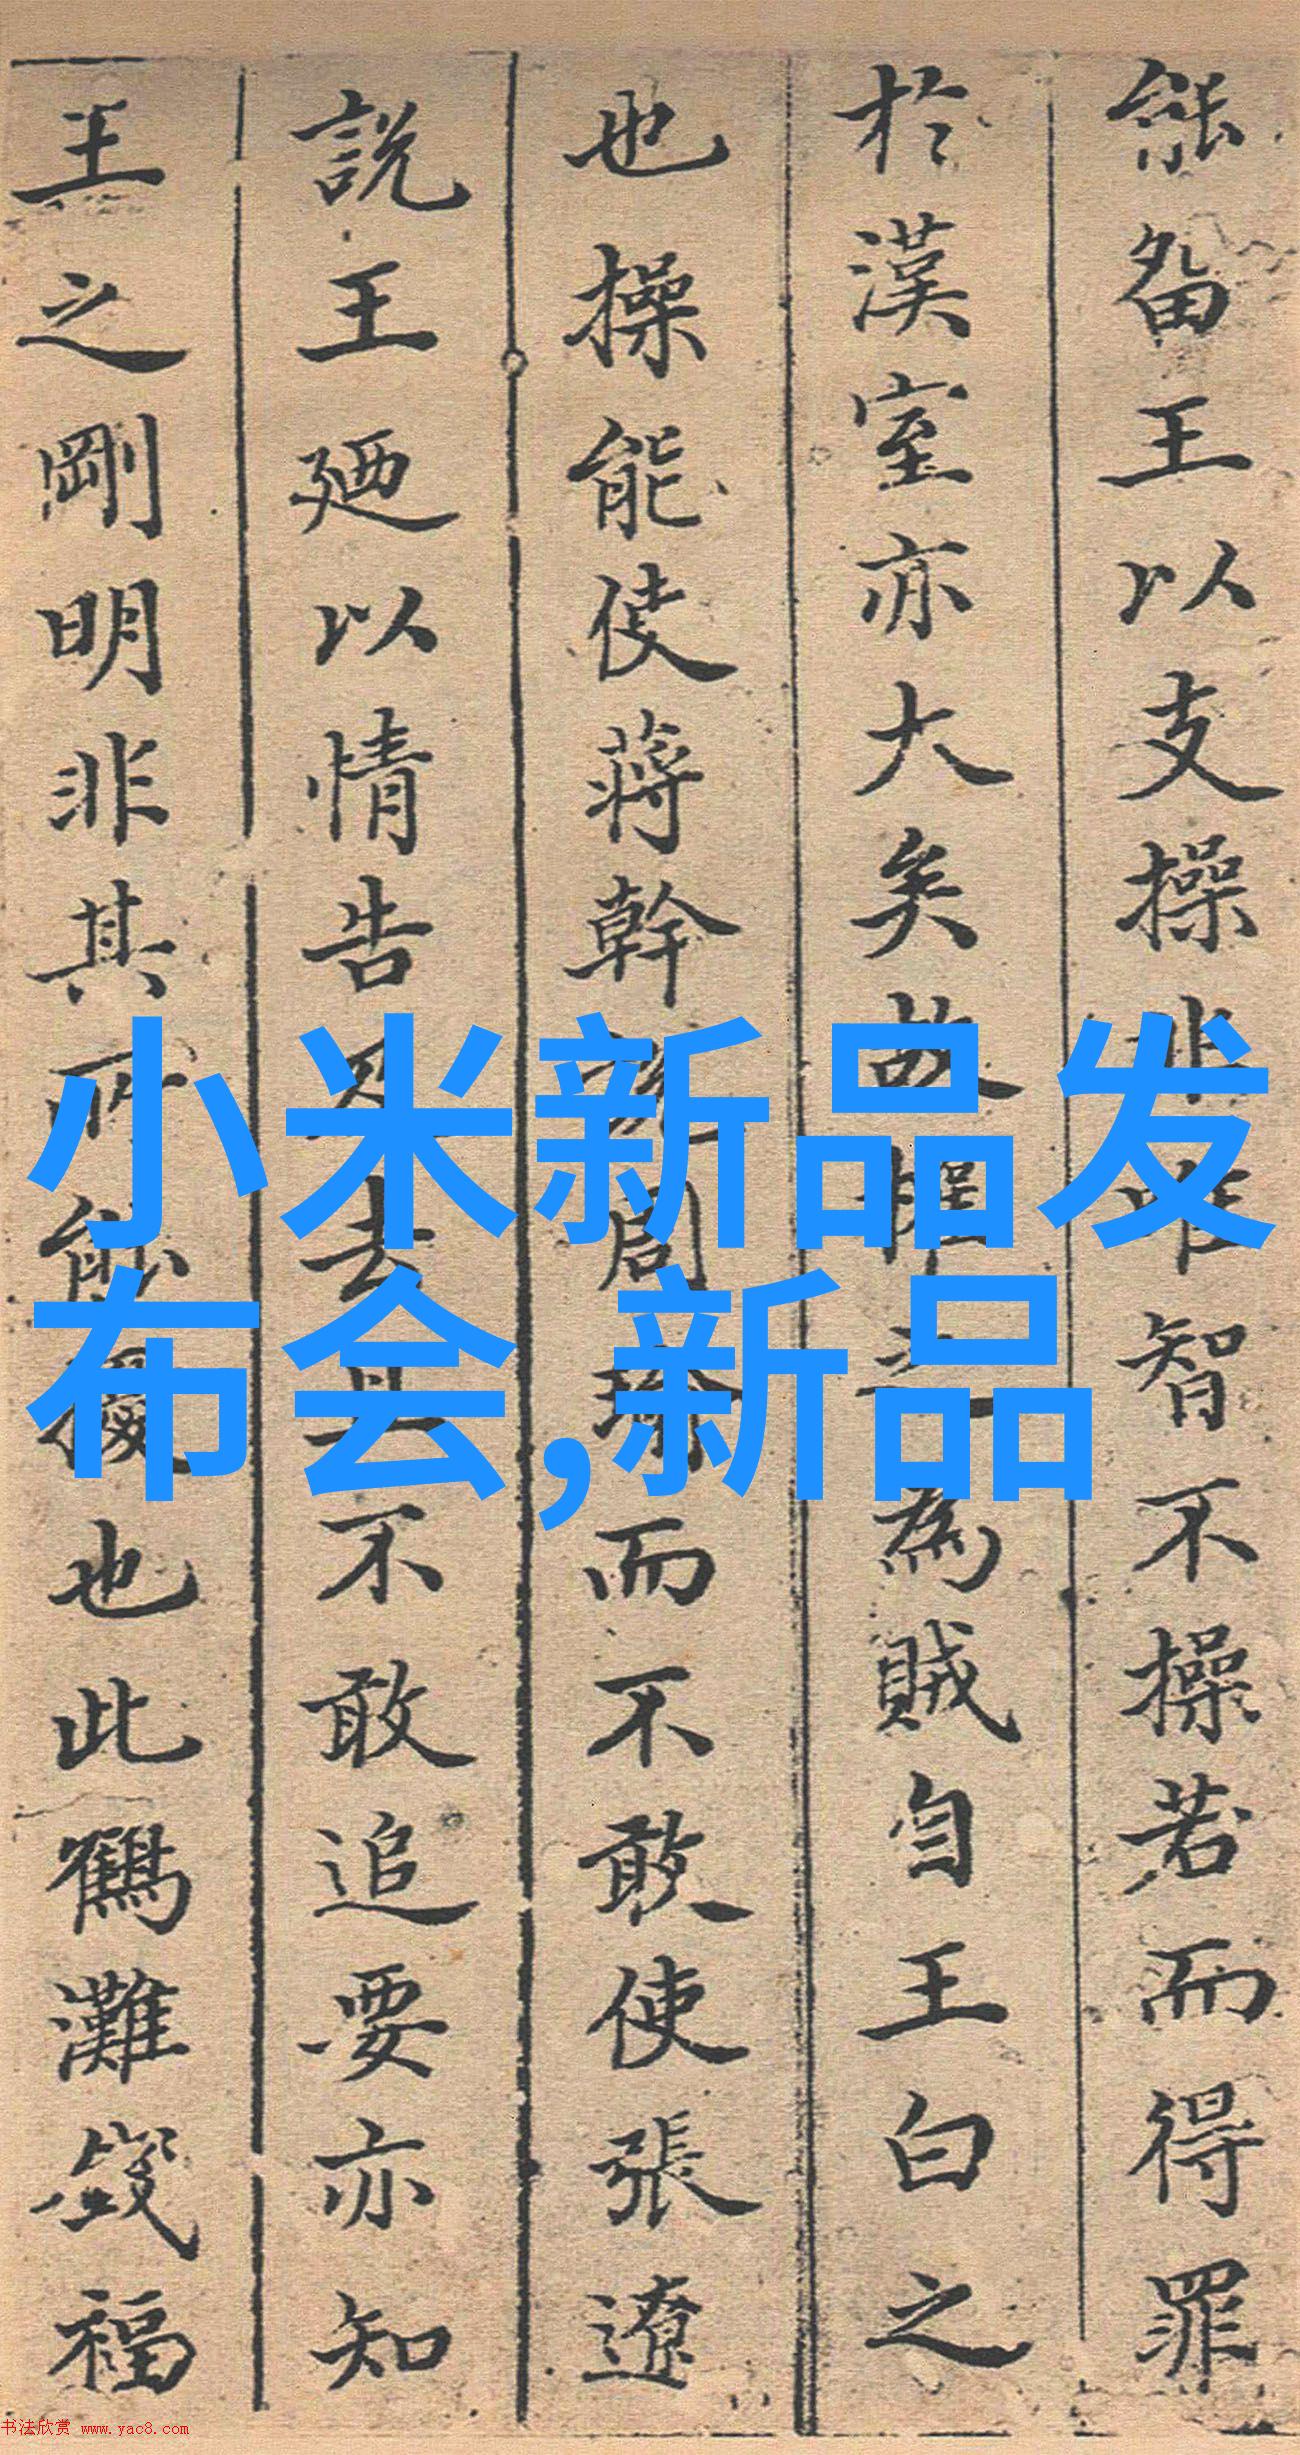 能留王以支操非唯智不操若而得罪
於漢室亦大矣故操之為賊自王白之
也操能使蔣幹說周瑜而不敢使張遼
說王廼以情告
去
不敢追要亦知
王之剛明非其所能
也此鶴灘
福
小米新品发
布会,新品
书法欣赏 www.yac8.com